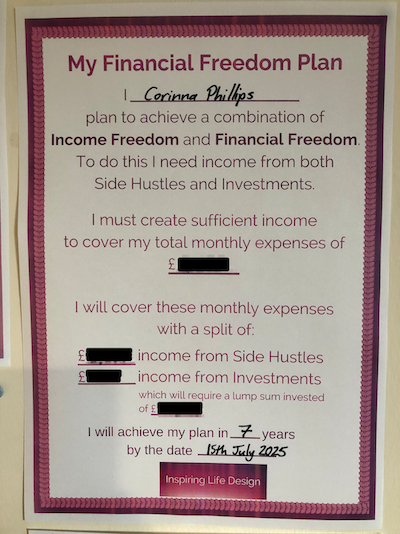 My Financial Freedom Plan
I Corinna Phillips
plan to achieve a combination of
Income Freedom and Financial Freedom.
To do this I need income from both
Side Hustles and Investments.
I must create sufficient income
to cover my total monthly expenses of
£
I will cover these monthly expenses
with a split of:
£ income from Side Hustles
£ income from Investments
which will require a lump sum invested
of £
I will achieve my plan in 7 years
by the date 15th July 2025
Inspiring Life Design